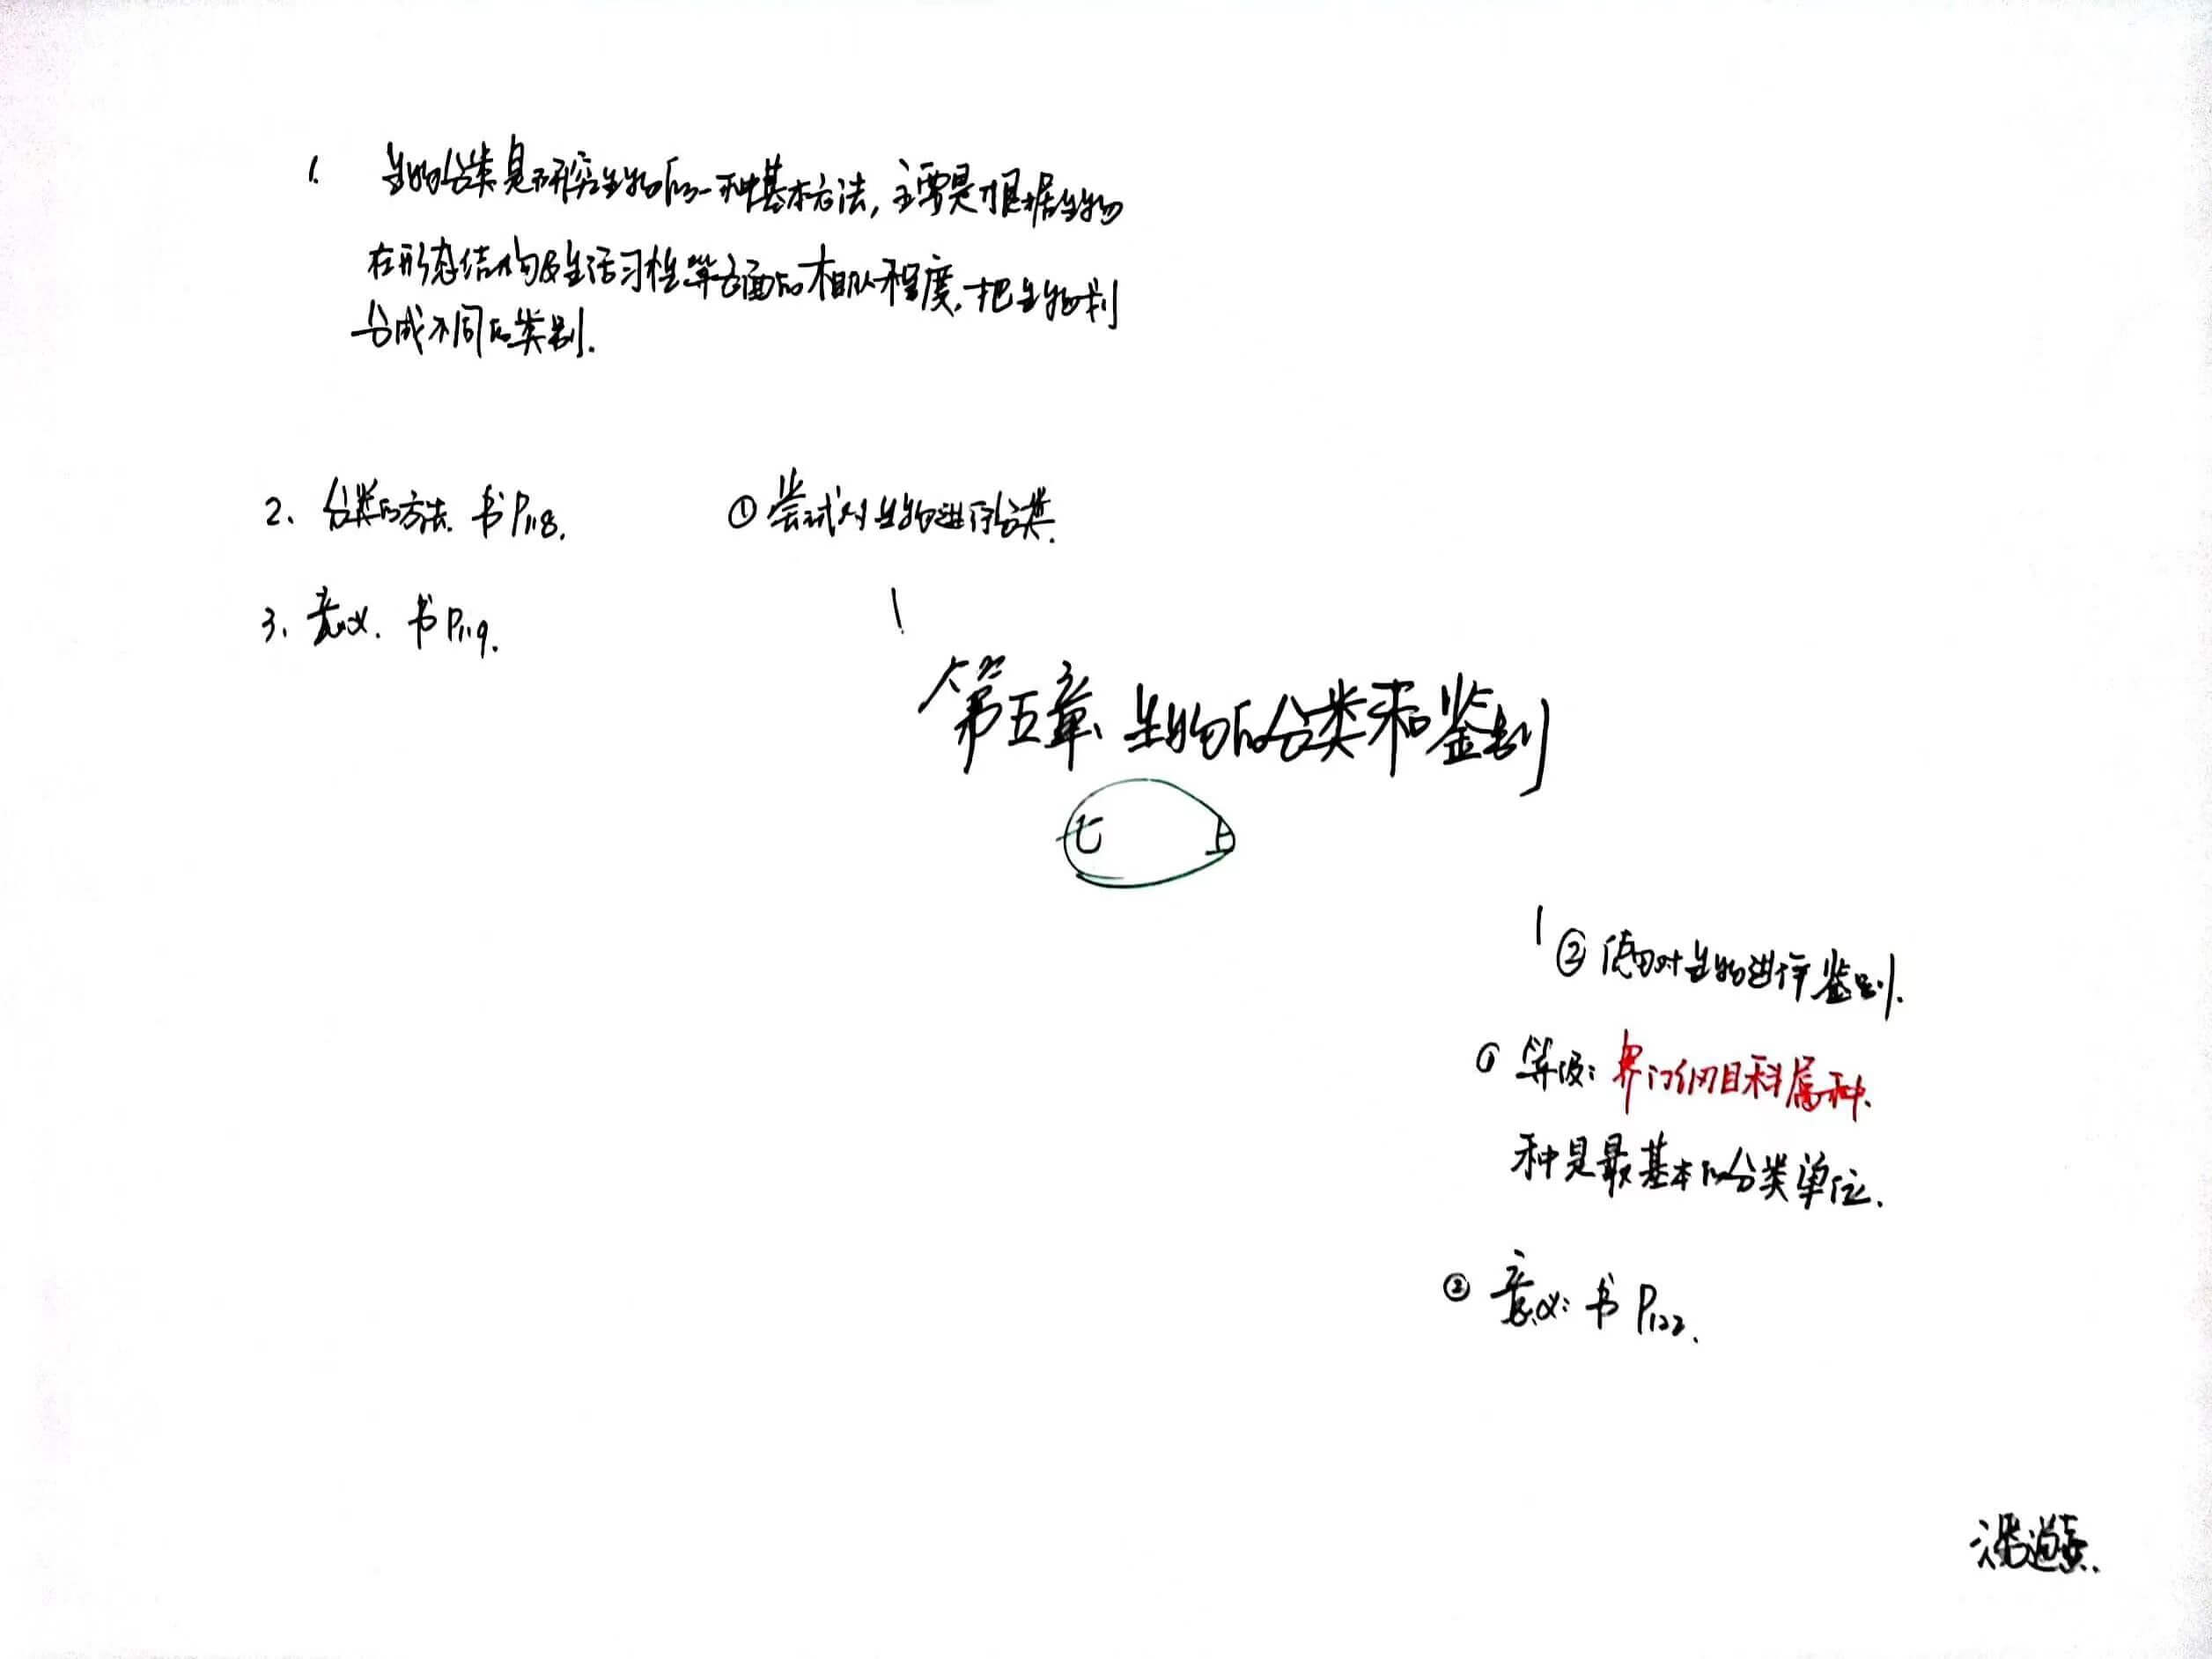 1. 生物分类是研究生物的一种基本方法,主要是根据生物
在形态结构及生活习性等方面的相似程度,把生物划
分成不同的类别.
2、分类的方法. 书P118.
3、意义. 书P119.
①尝试对生物进行分类.
第五章、生物的分类和鉴别
七 上
② 对生物进行鉴别.
① 等级:界门纲目科属种.
种是最基本的分类单位.
② 意义:书P122.